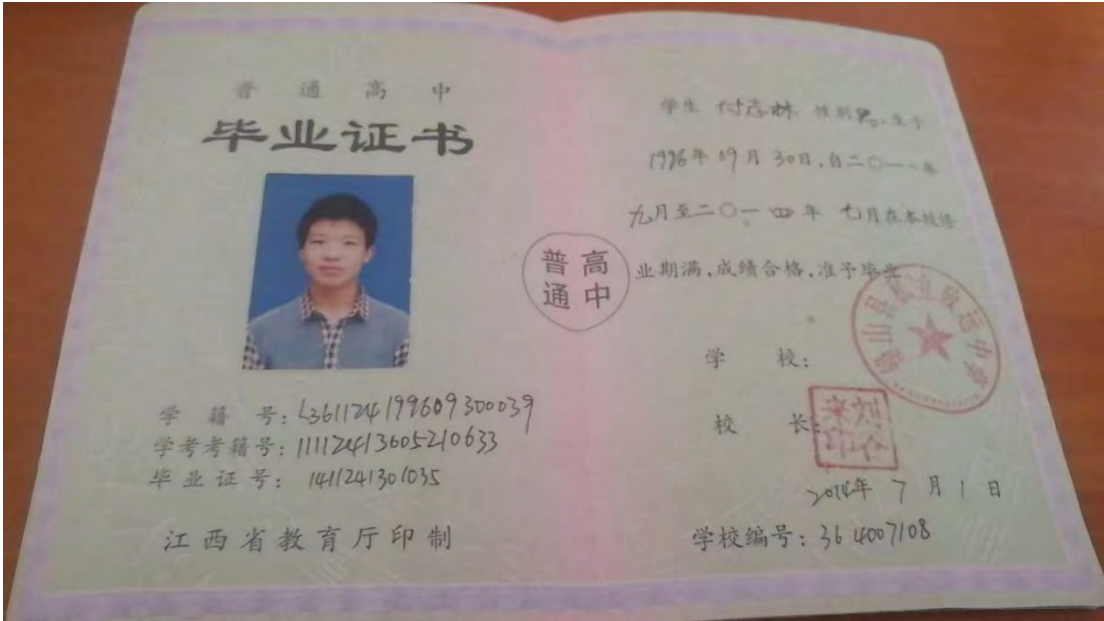 普通高中
毕业证书
学籍号：L361124199609300039
学考考籍号：11112413605210633
毕业证号：1411241301035
江西省教育厅印制
高中
普通
学生 付志林 性别男，生于
1996年 09月 30日，自二〇一一年
九月至二〇一四年 七月在本校修
业期满，成绩合格，准予毕业
学校：
铅山县私立致远中学
校长：
刘仁
来印
2014年 7月1日
学校编号：364007108